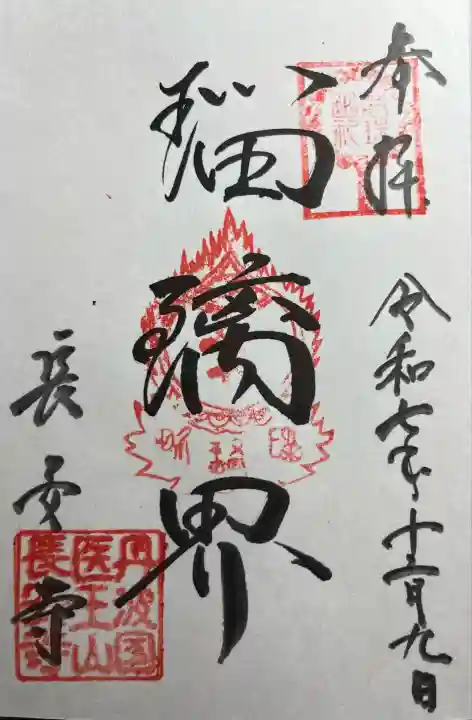 奉拝
令和七年十二月九日
瑠璃界
長安寺
丹波国
医王山
長安寺